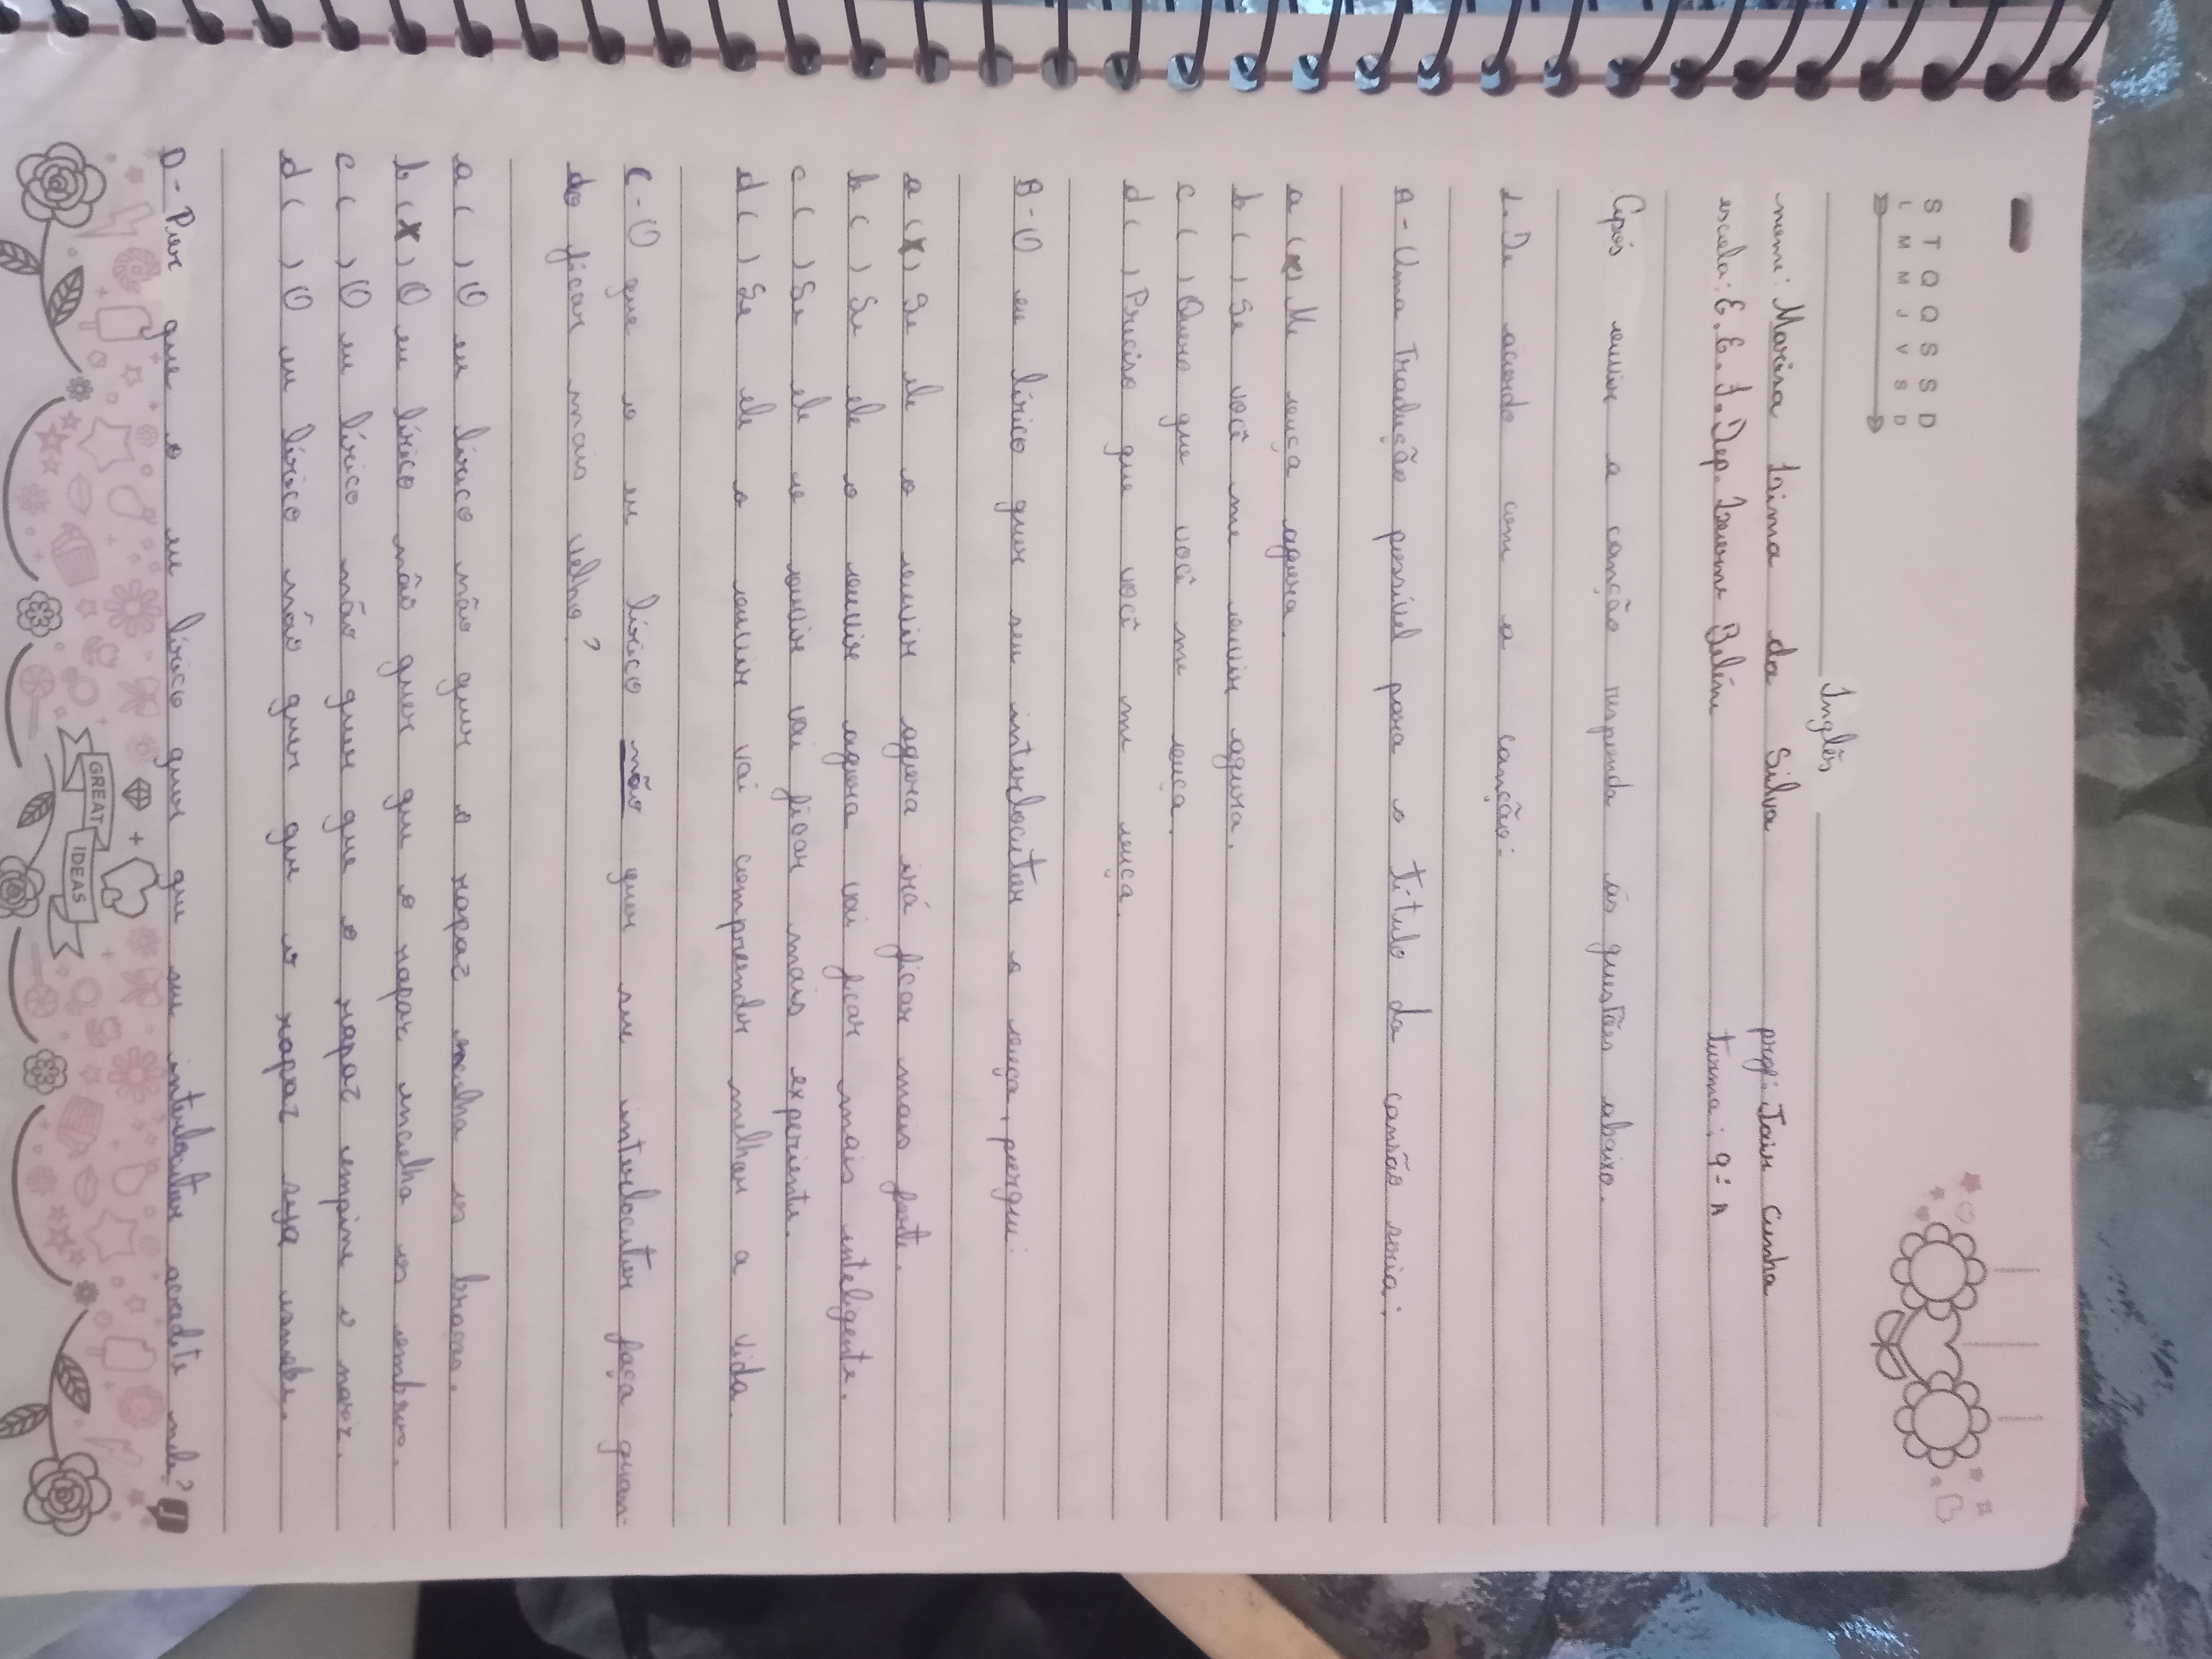 S T Q Q S S D
L M M J V S D
Inglês
nome: Maraisa Laima da Silva prof: Jair Cunha
escola: E. E. I. Dep. Izerom Belém turma: 9º A
Após ouvir a canção responda ás questões abaixo.
1. De acordo com a canção:
A - Uma Tradução possível para o título da cansão seria:
a (x) Me ouça agora.
b ( ) Se você me ouvir agora.
c ( ) Quero que você me ouça.
d ( ) Preciso que você me ouça.
B - O eu lírico quer seu interlocutor o ouça, porque:
a (x) Se ele o ouvir agora irá ficar mais forte.
b ( ) Se ele o ouvir agora vai ficar mais inteligente.
c ( ) Se ele o ouvir vai ficar mais experiente.
d ( ) Se ele o ouvir vai comprender melhor a vida.
C - O que o eu lírico não quer seu interlocutor faça quan-
do ficar mais velho?
a ( ) O eu lírico não quer o rapaz encolha os braços.
b (x) O eu lírico não quer que o rapaz encolha os ombros.
c ( ) O eu lírico não quer que o rapaz empine o nariz.
d ( ) O eu lírico não quer que o rapaz seja esnobe.
D - Por que o eu lírico quer que seu interlocutor acredite nele?
GREAT IDEAS